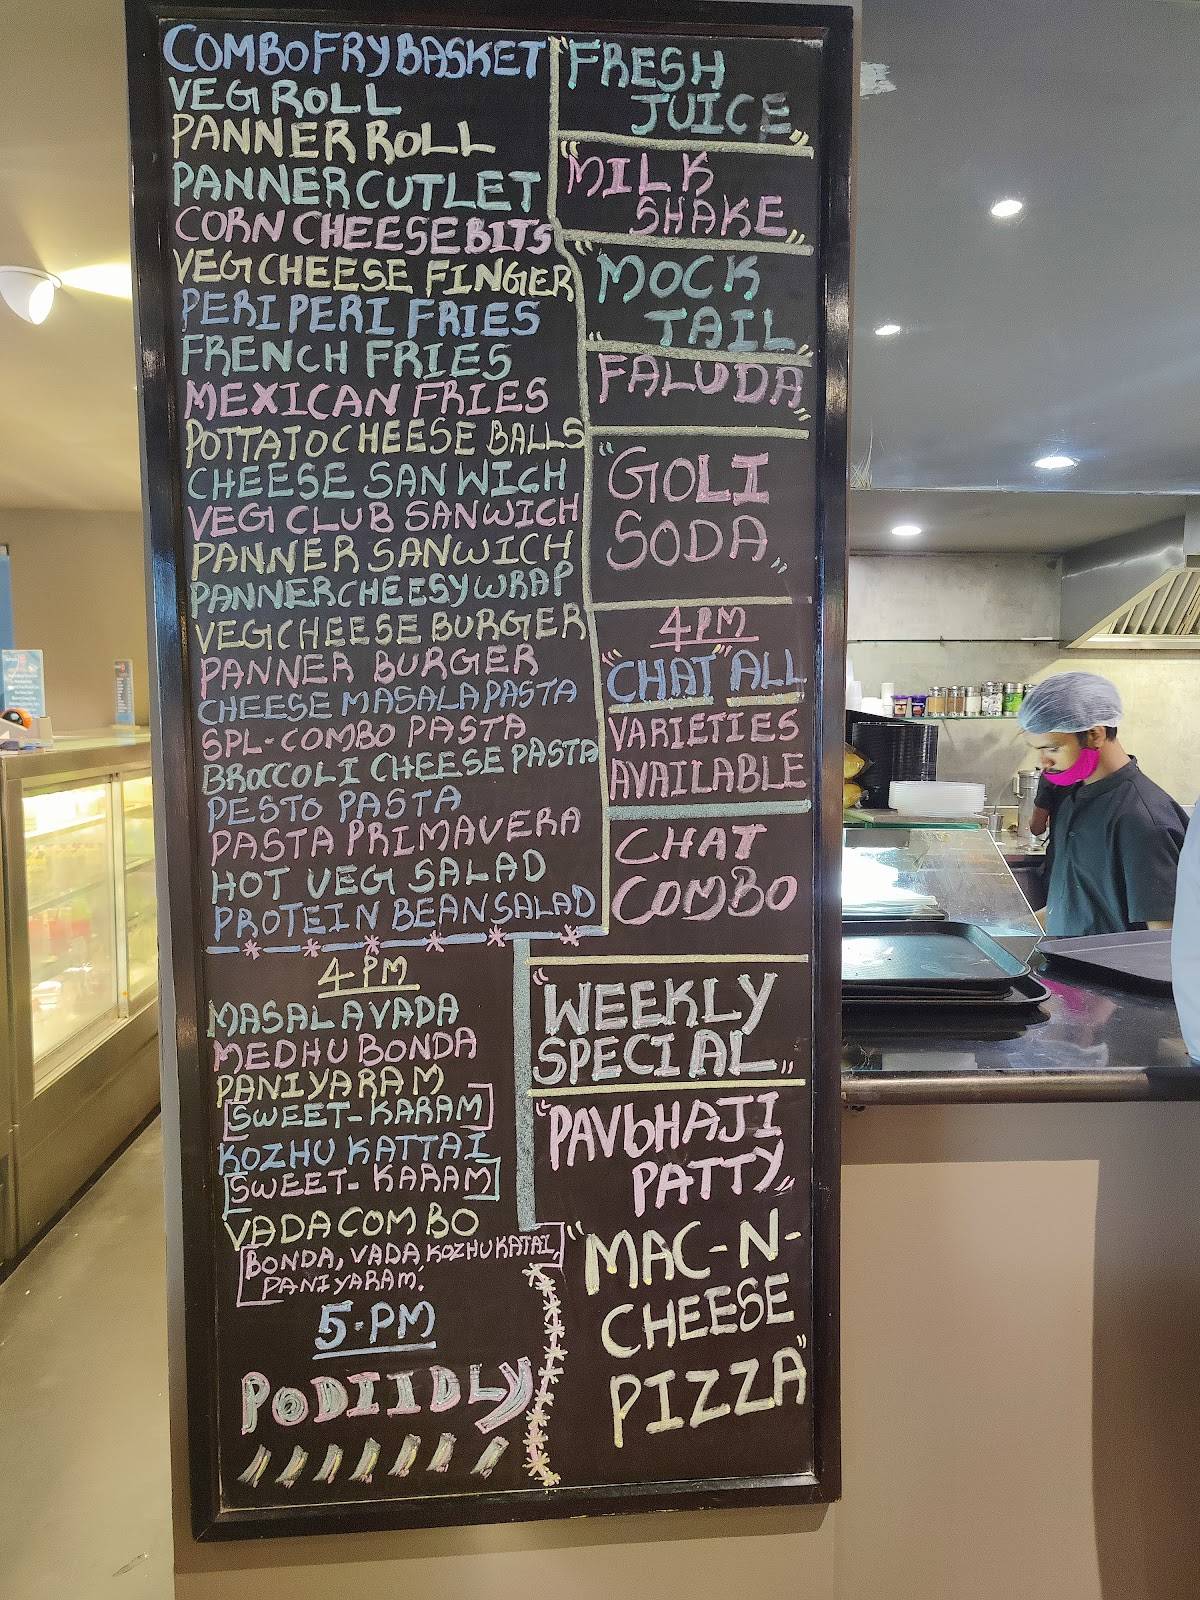 COMBO FRY BASKET
VEG ROLL
PANNER ROLL
PANNER CUTLET
CORN CHEESE BITS
VEG CHEESE FINGER
PERI PERI FRIES
FRENCH FRIES
MEXICAN FRIES
POTTATO CHEESE BALLS
CHEESE SANWICH
VEG CLUB SANWICH
PANNER SANWICH
PANNER CHEESY WRAP
VEG CHEESE BURGER
PANNER BURGER
CHEESE MASALA PASTA
SPL-COMBO PASTA
BROCCOLI CHEESE PASTA
PESTO PASTA
PASTA PRIMAVERA
HOT VEG SALAD
PROTEIN BEAN SALAD
4 PM
MASALA VADA
MEDHU BONDA
PANIYARAM
SWEET-KARAM
KOZHU KATTAI
SWEET-KARAM
VADA COMBO
BONDA, VADA, KOZHUKATAI,
PANIYARAM.
5-PM
PODIIDLY
"FRESH
JUICE"
"MILK
SHAKE"
"MOCK
TAIL"
"FALUDA"
"GOLI
SODA"
4PM
"CHAT" ALL
VARIETIES
AVAILABLE
CHAT
COMBO
"WEEKLY
SPECIAL"
"PAVbHAJI
PATTY"
"MAC-N-
CHEESE
PIZZA"